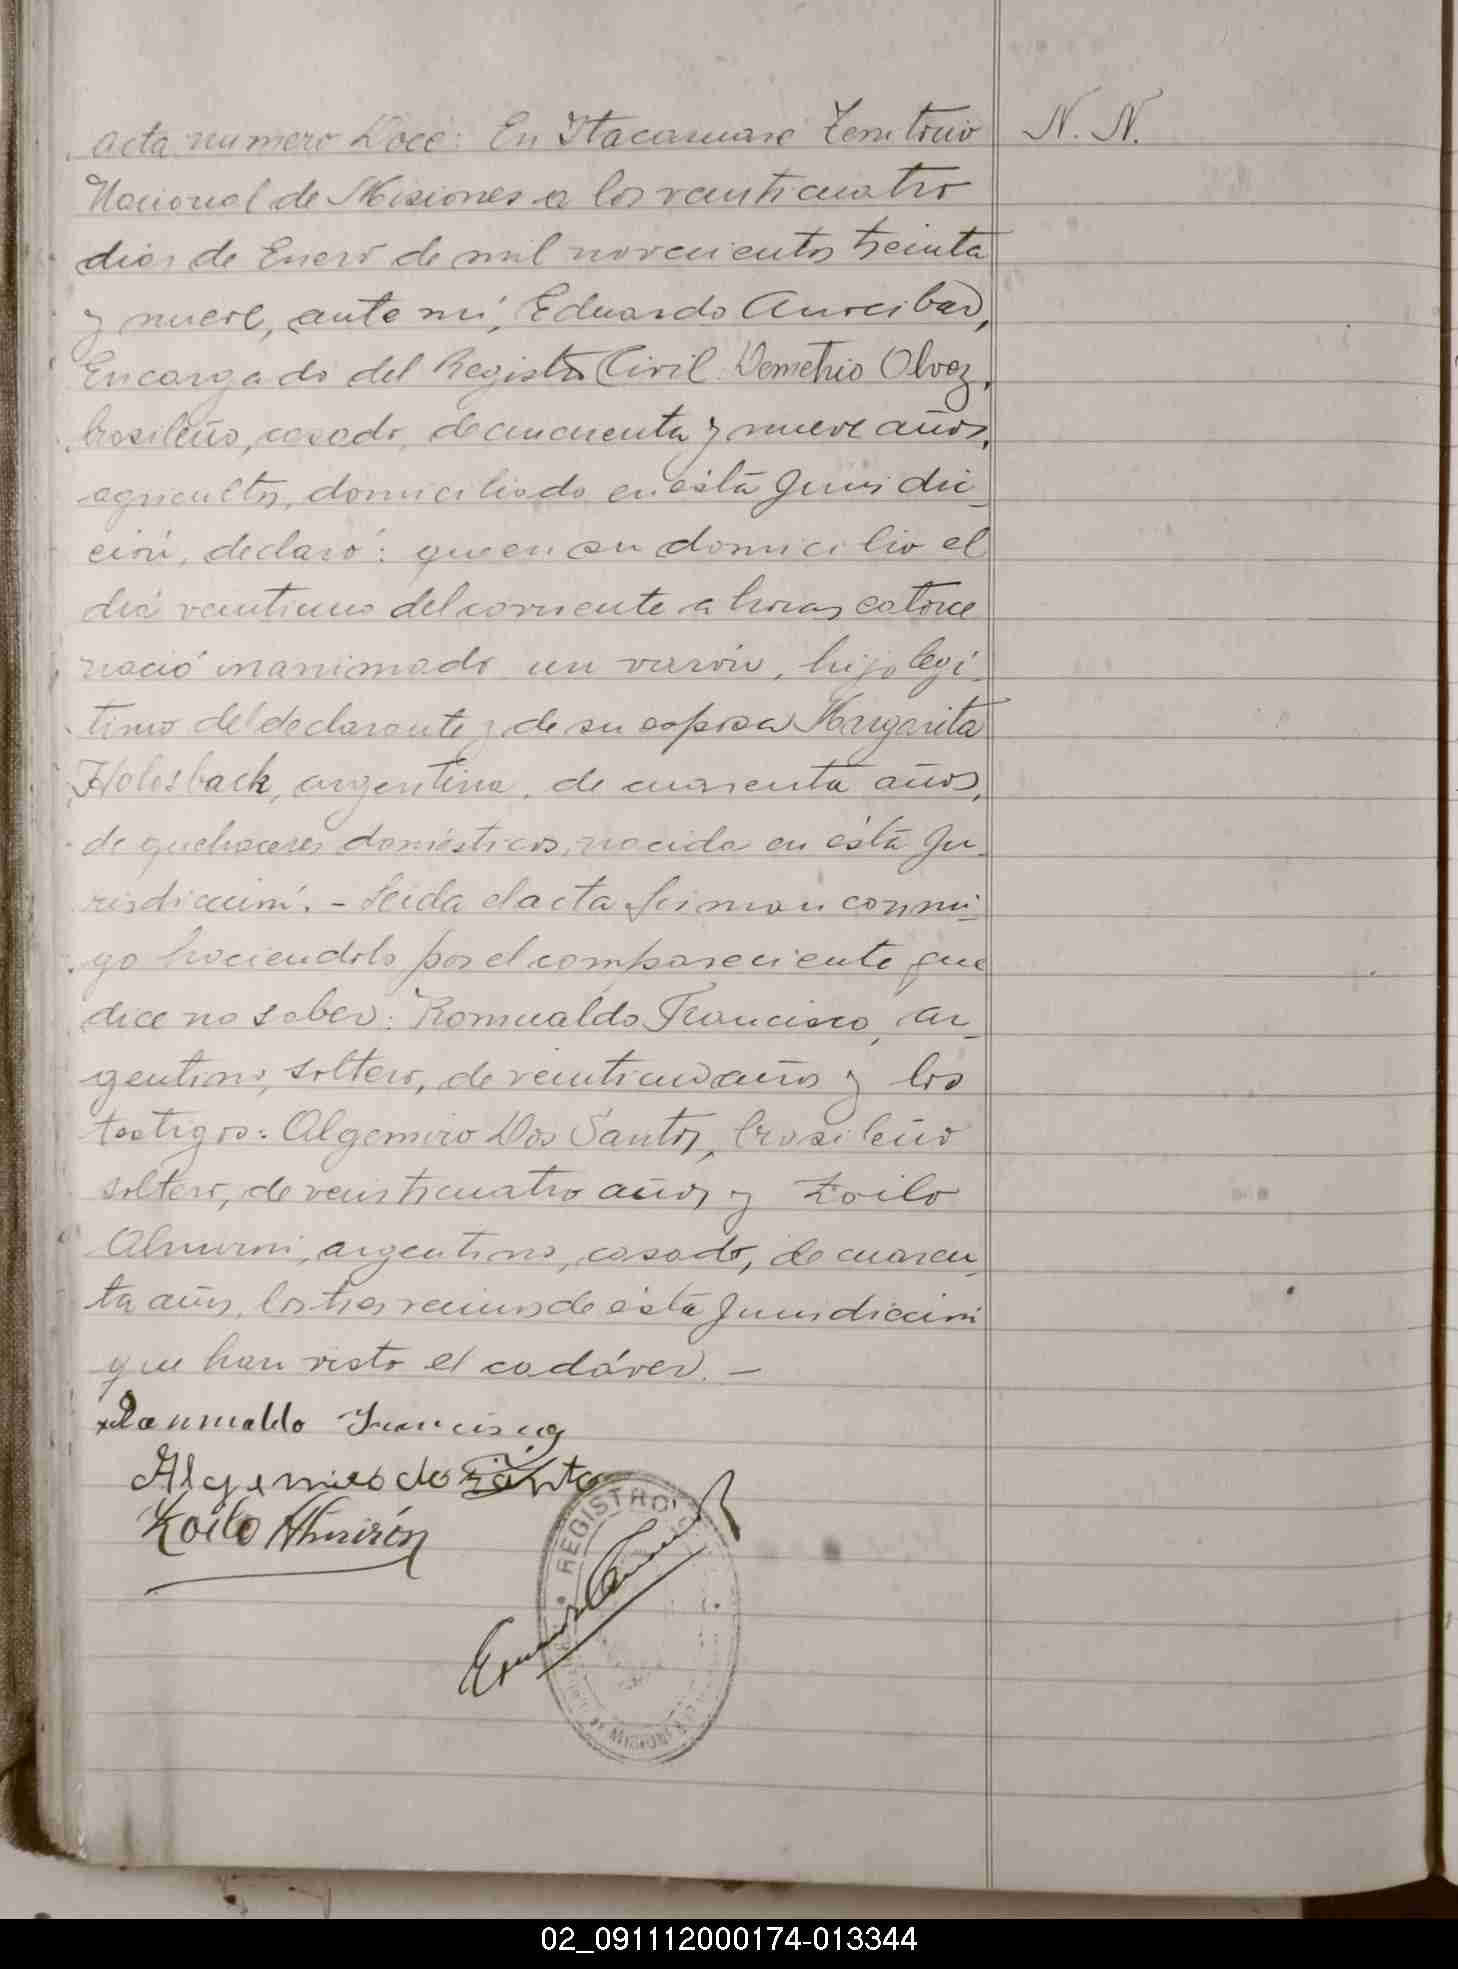 acta numero Doce: En Itacaruare Territorio
N. N.
Nacional de Misiones a los veinticuatro
dias de Enero de mil novecientos treinta
y nueve, ante mí, Eduardo Aureibar,
Encargado del Registro Civil Demetrio Olvez,
brasileño, casado, de cincuenta y nueve años,
agricultor, domiciliado en ésta Jurisdic
ción, declaró: que en su domicilio el
día veintiuno del corriente a horas catorce
nació inanimado un varón, hijo legí
timo del declarante y de su esposa Margarita
Holesback, argentina, de cuarenta años,
de quehaceres domésticos, nacida en ésta Ju
risdicción. - Leida el acta firman conmi
go haciendolo por el compareciente que
dice no saber: Romualdo Francisco, ar
gentino, soltero, de veintidos años y los
testigos: Algemiro Dos Santos, brasileño
soltero, de veinticuatro años y Zoilo
Almirón, argentino, casado, de cuaren
ta años, los tres vecinos de ésta Jurisdicción
que han visto el cadáver. -
Romualdo Francisco
Algemiro do Santo
Zoilo Almirón
REGISTRO
MISIONES
02_091112000174-013344